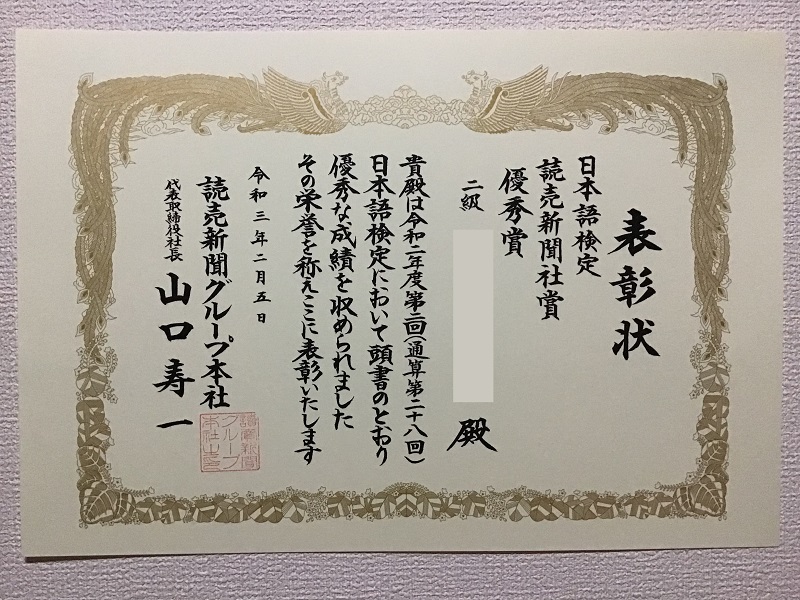 表彰状
日本語検定
読売新聞社賞
優秀賞
二級
殿
貴殿は令和二年度第二回(通算第二十八回)
日本語検定において頭書のとおり
優秀な成績を収められました
その栄誉を称えここに表彰いたします
令和三年二月五日
読売新聞グループ本社
代表取締役社長
山口寿一
讀賣新聞
グループ
本社